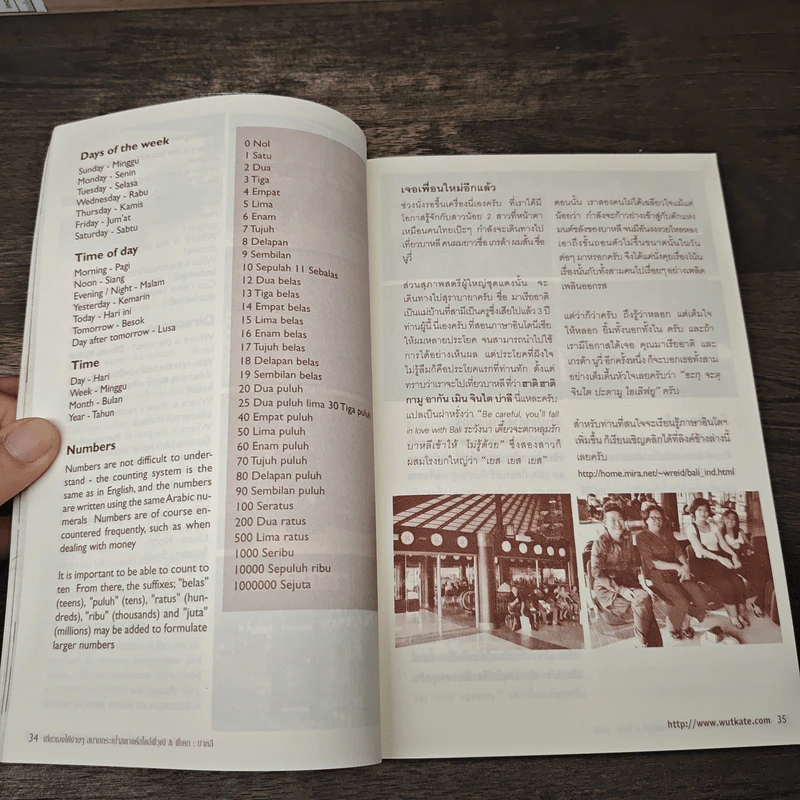 Days of the week
Sunday - Minggu
Monday - Senin
Tuesday - Selasa
Wednesday - Rabu
Thursday - Kamis
Friday - Jum'at
Saturday - Sabtu
Time of day
Morning - Pagi
Noon - Siang
Evening / Night - Malam
Yesterday - Kemarin
Today - Hari ini
Tomorrow - Besok
Day after tomorrow - Lusa
Time
Day - Hari
Week - Minggu
Month - Bulan
Year - Tahun
Numbers
Numbers are not difficult to under-
stand - the counting system is the
same as in English, and the numbers
are written using the same Arabic nu-
merals Numbers are of course en-
countered frequently, such as when
dealing with money
It is important to be able to count to
ten From there, the suffixes; "belas"
(teens), "puluh" (tens), "ratus" (hun-
dreds), "ribu" (thousands) and "juta"
(millions) may be added to formulate
larger numbers
0 Nol
1 Satu
2 Dua
3 Tiga
4 Empat
5 Lima
6 Enam
7 Tujuh
8 Delapan
9 Sembilan
10 Sepulah 11 Sebalas
12 Dua belas
13 Tiga belas
14 Empat belas
15 Lima belas
16 Enam belas
17 Tujuh belas
18 Delapan belas
19 Sembilan belas
20 Dua puluh
25 Dua puluh lima 30 Tiga puluh
40 Empat puluh
50 Lima puluh
60 Enam puluh
70 Tujuh puluh
80 Delapan puluh
90 Sembilan puluh
100 Seratus
200 Dua ratus
500 Lima ratus
1000 Seribu
10000 Sepuluh ribu
1000000 Sejuta
34 เที่ยวเองได้ง่ายๆ สบายกระเป๋าสตางค์สไตล์ฟิวุฒิ & พี่เคท : บาหลี
เจอเพื่อนใหม่อีกแล้ว
ช่วงนั่งรอขึ้นเครื่องนี่เองครับ ที่เราได้มี
โอกาสรู้จักกับสาวน้อย 2 สาวที่หน้าตา
เหมือนคนไทยเป๊ะๆ กำลังจะเดินทางไป
เที่ยวบาหลี คนผมยาวชื่อ เกรต้า ผมสั้น ชื่อ
นูวี่
ส่วนสุภาพสตรีผู้ใหญ่ชุดแดงนั้น จะ
เดินทางไปสุราบายาครับ ชื่อ มาเรียอาติ
เป็นแม่บ้านที่สามีเป็นครูซึ่งเสียไปแล้ว 3 ปี
ท่านผู้นี้ นี่เองครับ ที่สอนภาษาอินโดนีเซีย
ให้ผมหลายประโยค จนสามารถนำไปใช้
การได้อย่างเห็นผล แต่ประโยคที่ฝังใจ
ไม่รู้ลืมก็คือประโยคแรกที่ท่านทัก ตั้งแต่
ทราบว่าเราจะไปเที่ยวบาหลีที่ว่า ฮาติ ฮาติ
กามู อากัน เมิน จินโต บาลี นี่แหละครับ
แปลเป็นฝาหรั่งว่า "Be careful, you'll fall
in love with Bali ระวังนา เดี๋ยวจะตกหลุมรัก
บาหลีเข้าให้ ไม่รู้ด้วย" ซึ่งสองสาวก็
ผสมโรงยกใหญ่ว่า "เยส เยส เยส"
ตอนนั้น เราสองคนไม่ได้เฉลียวใจแม้แต่
น้อยว่า กำลังจะก้าวย่างเข้าสู่กับดักแห่ง
มนต์ขลังของบาหลี จนมีอันงงงวยไหลหลง
เอาถึงขั้นถอนตัวไม่ขึ้นขนาดนั้นในวัน
ต่อๆ มาหรอกครับ จึงได้แต่นั่งคุยเรื่องโน้น
เรื่องนั้นกับทั้งสามคนไปเรื่อยๆ อย่างเพลิด
เพลินออกรส
แต่ว่าก็ว่าครับ ถึงรู้ว่าหลอก แต่เต็มใจ
ให้หลอก ยิ้มทั้งนอกทั้งใน ครับ และถ้า
เรามีโอกาสได้เจอ คุณมาเรียอาติ และ
เกรต้า นูวี่ อีกครั้งหนึ่ง ก็จะบอกเธอทั้งสาม
อย่างเต็มตื้นหัวใจเลยครับว่า "อะกู จะตุ
จินโต ปะดามู ไอเลิฟยู" ครับ
สำหรับท่านที่สนใจจะเรียนรู้ภาษาอินโดฯ
เพิ่มขึ้น ก็เรียนเชิญคลิกได้ที่ลิงค์ข้างล่างนี้
เลยครับ
http://home.mira.net/~wreid/bali_ind.html
http://www.wutkate.com 35